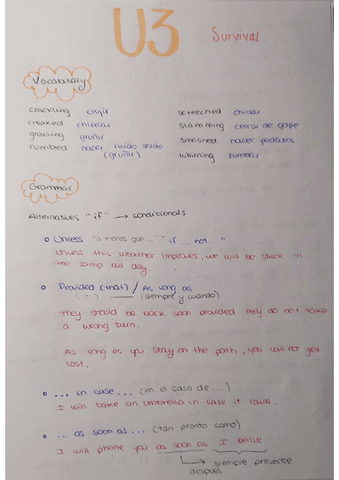 U3 Survival
Vocabulary
crackling crujir
creaked chirriar
growling gruñir
rumbled hacer ruido sordo
(gruñir)
screeched chillar
slamming cerrar de golpe
smashed hacer pedazos
whirring zumbar
Grammar
Alternatives "if" → conditionals
Unless "a menos que..." "if ... not. "
Unless this weather improves, we will be stuck in
the camp all day.
Provided (that) / As long as
( = ) (siempre y cuando)
They should be back soon provided they do not take
a wrong turn.
As long as you stay on the path, you will not get
lost.
... in case ... (en el caso de ...)
I will take an umbrella in case it rains.
... as soon as ... (tan pronto como)
I will phone you as soon as I arrive
↳ siempre presente
después